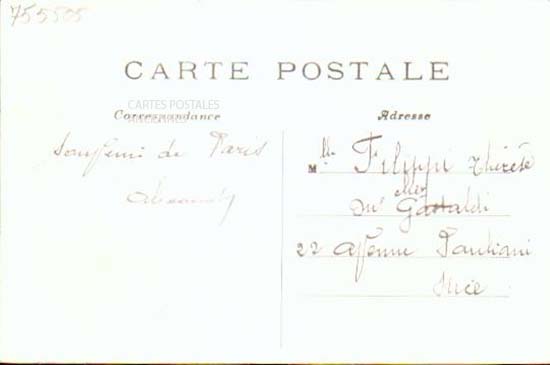 755505
CARTE POSTALE
CARTES POSTALES
ANCIENNES
Correspondance
Adresse
Souvenir de Paris
Mlle Filippi Thérèse
chez
Mr Gastaldi
22 Avenue Pauliani
Nice